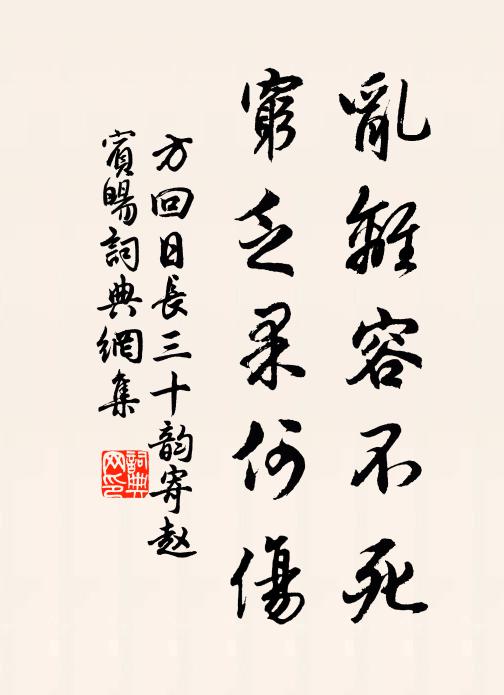 亂離容不死
窮乏果何傷
方回日長三十韵寄赵
賓暘詞典網集
詞典网印